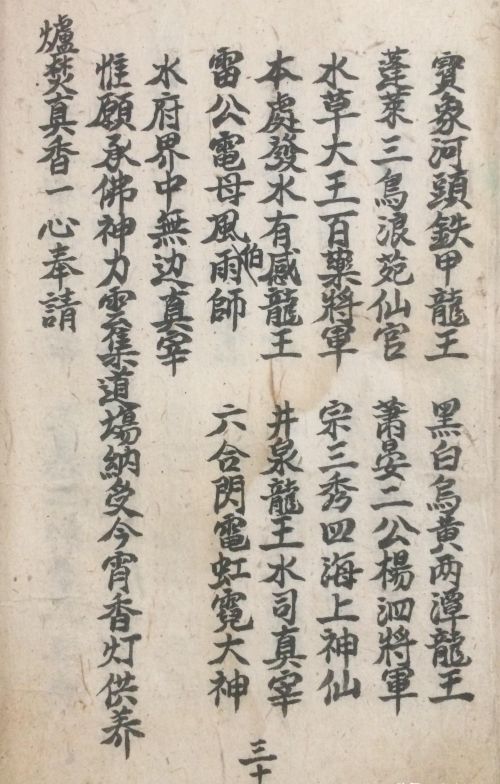 寶象河頭鉄甲龍王　黑白烏黄两潭龍王
蓬莱三鳥浪苑仙官　蕭晏二公楊泗將軍
水草大王百藥將軍　宗三秀四海上神仙
本處發水有感龍王　井泉龍王水司真宰
雷公電母風伯雨師　六合閃電虹霓大神
水府界中無边真宰
惟願承佛神力雲集道塲納受今宵香灯供养
爐焚真香一心奉請
三十